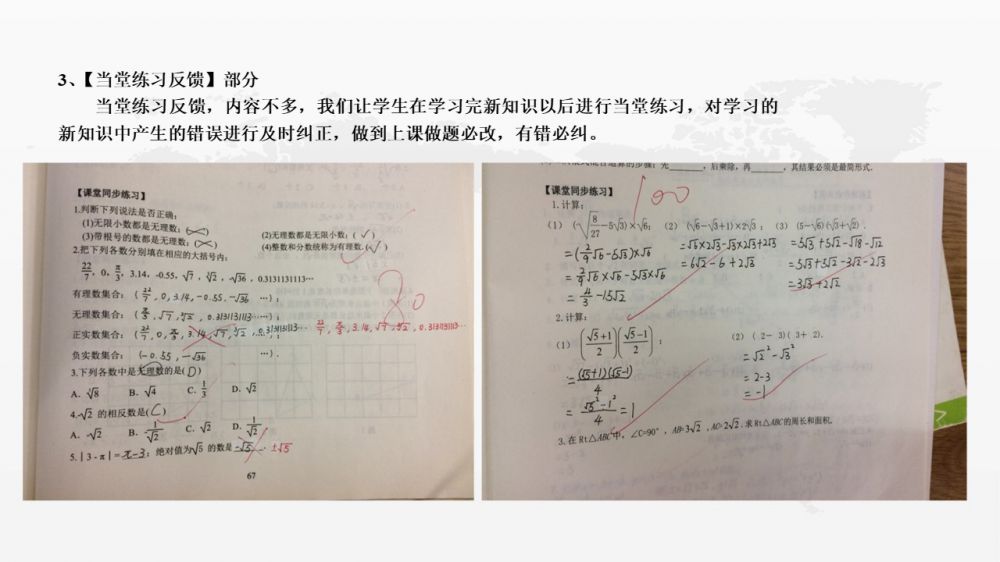 3、【当堂练习反馈】部分
当堂练习反馈，内容不多，我们让学生在学习完新知识以后进行当堂练习，对学习的
新知识中产生的错误进行及时纠正，做到上课做题必改，有错必纠。
【课堂同步练习】
1.判断下列说法是否正确：
(1)无限小数都是无理数；(×)
(2)无理数都是无限小数；(√)
(3)带根号的数都是无理数；(×)
(4)整数和分数统称为有理数.(√)
2.把下列各数分别填在相应的大括号内：
22/7，0，π/3，3.14，-0.55，√7，∛2，-√36，0.3131131113…
有理数集合：{22/7，0，3.14，-0.55，-√36 …}；
无理数集合：{π/3，√7，∛2，0.3131131113……}；
正实数集合：{22/7，0，π/3，3.14，√7，∛2，0.3131131113…}； 22/7，π/3，3.14，√7，∛2，0.3131131113…
负实数集合：{-0.55，-√36 …}.
80
3.下列各数中是无理数的是(D)
A. ∛8 B. √4 C. 1/3 D. √2
4.-√2 的相反数是(C)
A. -√2 B. 1/√2 C. √2 D. 1/√2
5.|3-π|=π-3；绝对值为√5 的数是-√5. ±√5
67
，后乘除，再，其结果必须是最简形式.
【课堂同步练习】
100
1.计算：
(1) (√8/27-5√3)×√6； (2) (√6-√3+1)×2√3； (3) (5-√6)(√3+√2).
=(2/9√6-5√3)×√6 =√6×2√3-√3×2√3+2√3 =5√3+5√2-√18-√12
=2/9√6×√6-5√3×√6 =6√2-6+2√3 =5√3+5√2-3√2-2√3
=4/3-15√2 =3√3+2√2
2.计算：
(1) (√5+1/2)(√5-1/2)； (2) ( 2- 3)( 3+ 2).
=(√5+1)(√5-1)/4 =√2²-√3²
=√5²-1²/4=1 =2-3
=-1
3.在 Rt△ABC 中，∠C=90°，AB=3√2，AC=2√2.求 Rt△ABC 的周长和面积.